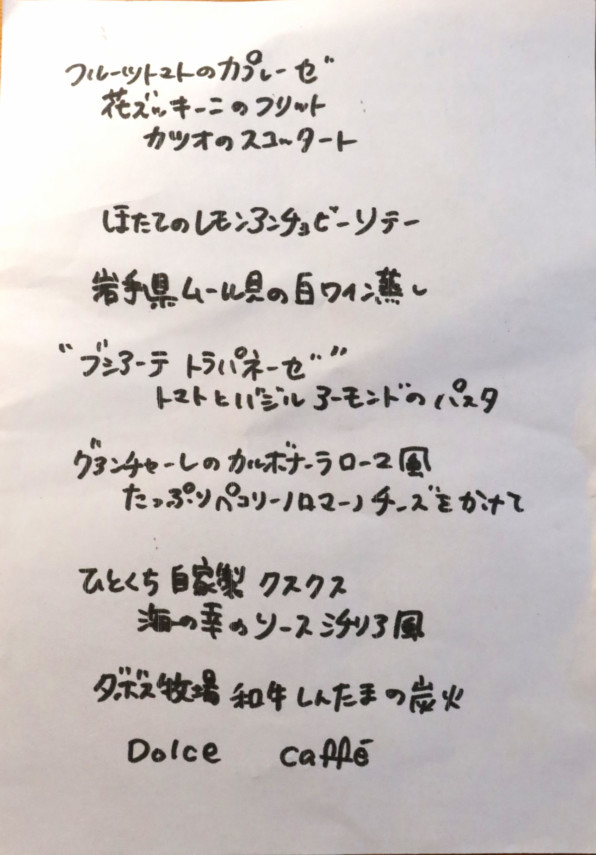 フルーツトマトのカプレーゼ
花ズッキーニのフリット
カツオのスコッタート
ほたてのレモンアンチョビーソテー
岩手県ムール貝の白ワイン蒸し
"ブシアーテ トラパネーゼ"
トマトとバジル アーモンドのパスタ
グアンチャーレのカルボナーラローマ風
たっぷりペコリーノロマーノチーズをかけて
ひとくち自家製 クスクス
海の幸のソースシチリア風
ダボス牧場 和牛しんたまの炭火
Dolce caffē